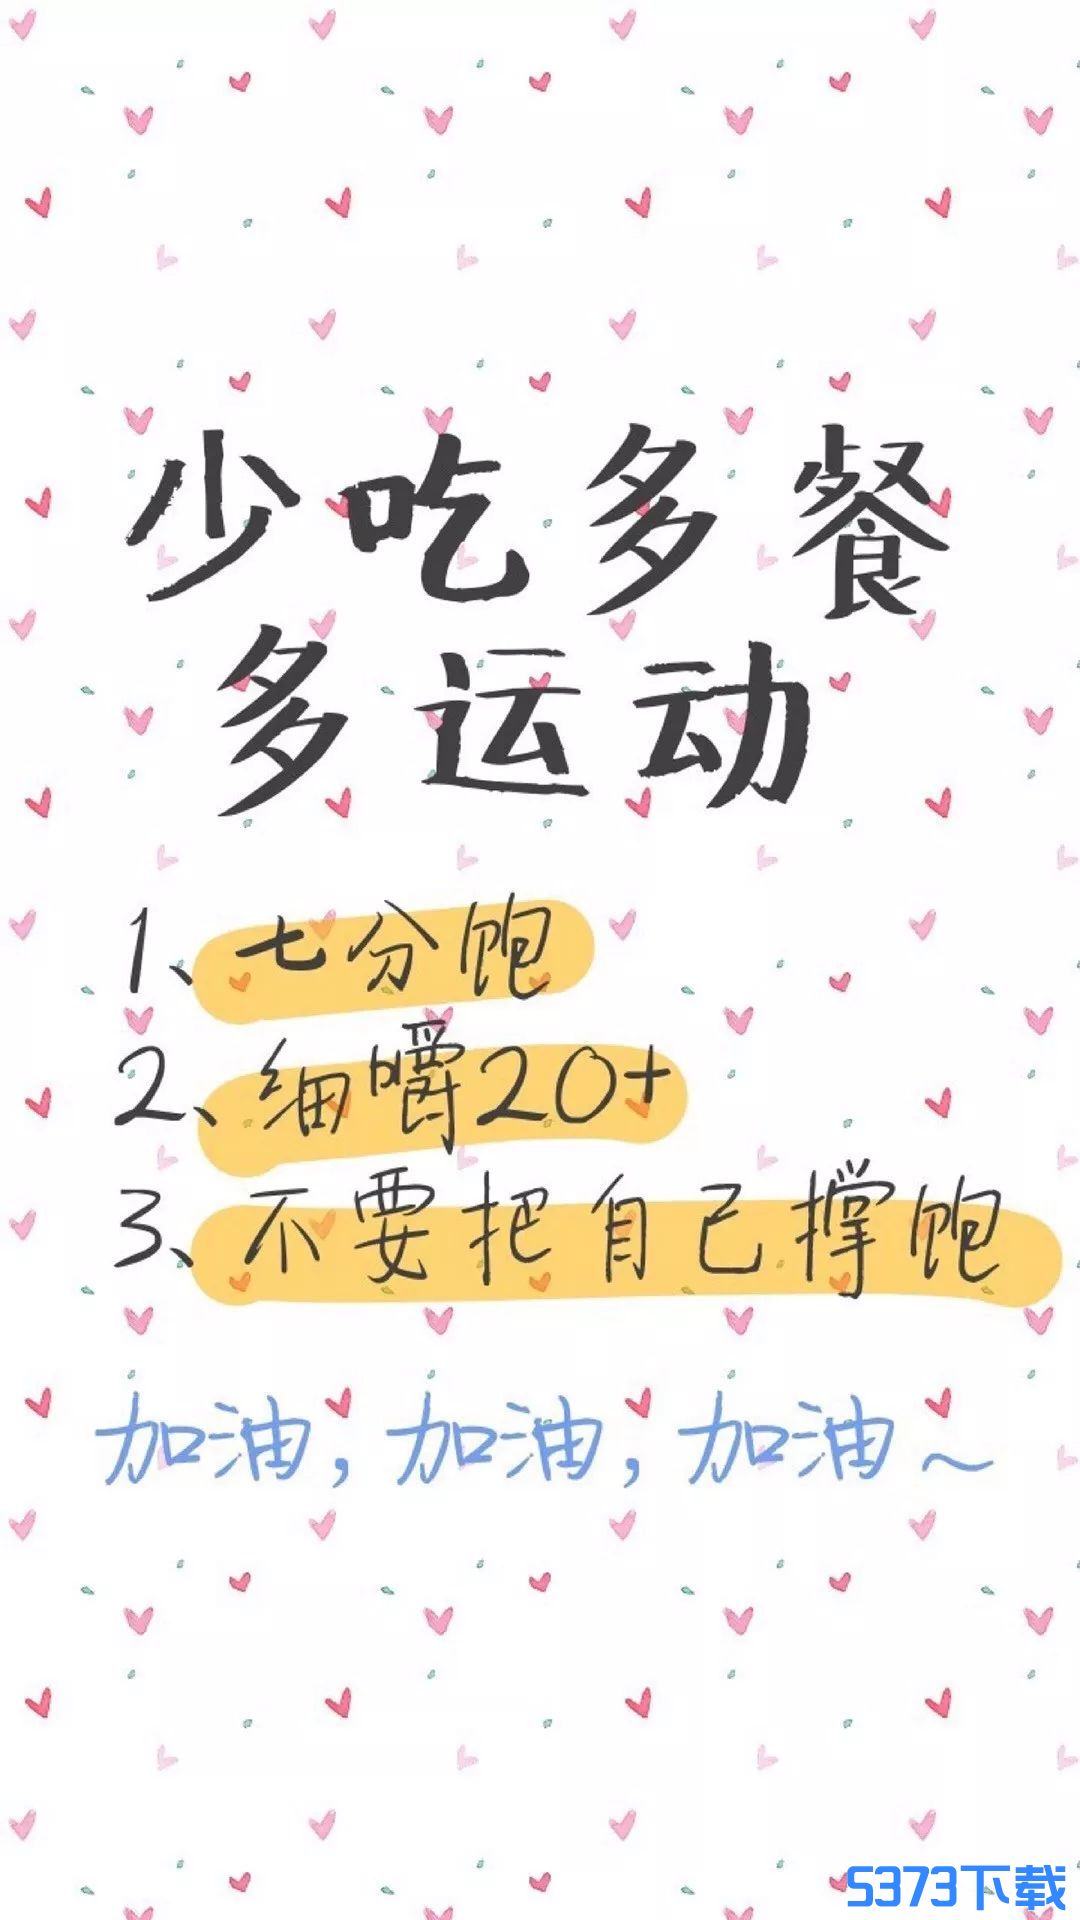 少吃多餐
多运动
1、七分饱
2、细嚼20+
3、不要把自己撑饱
加油，加油，加油～
5373下载